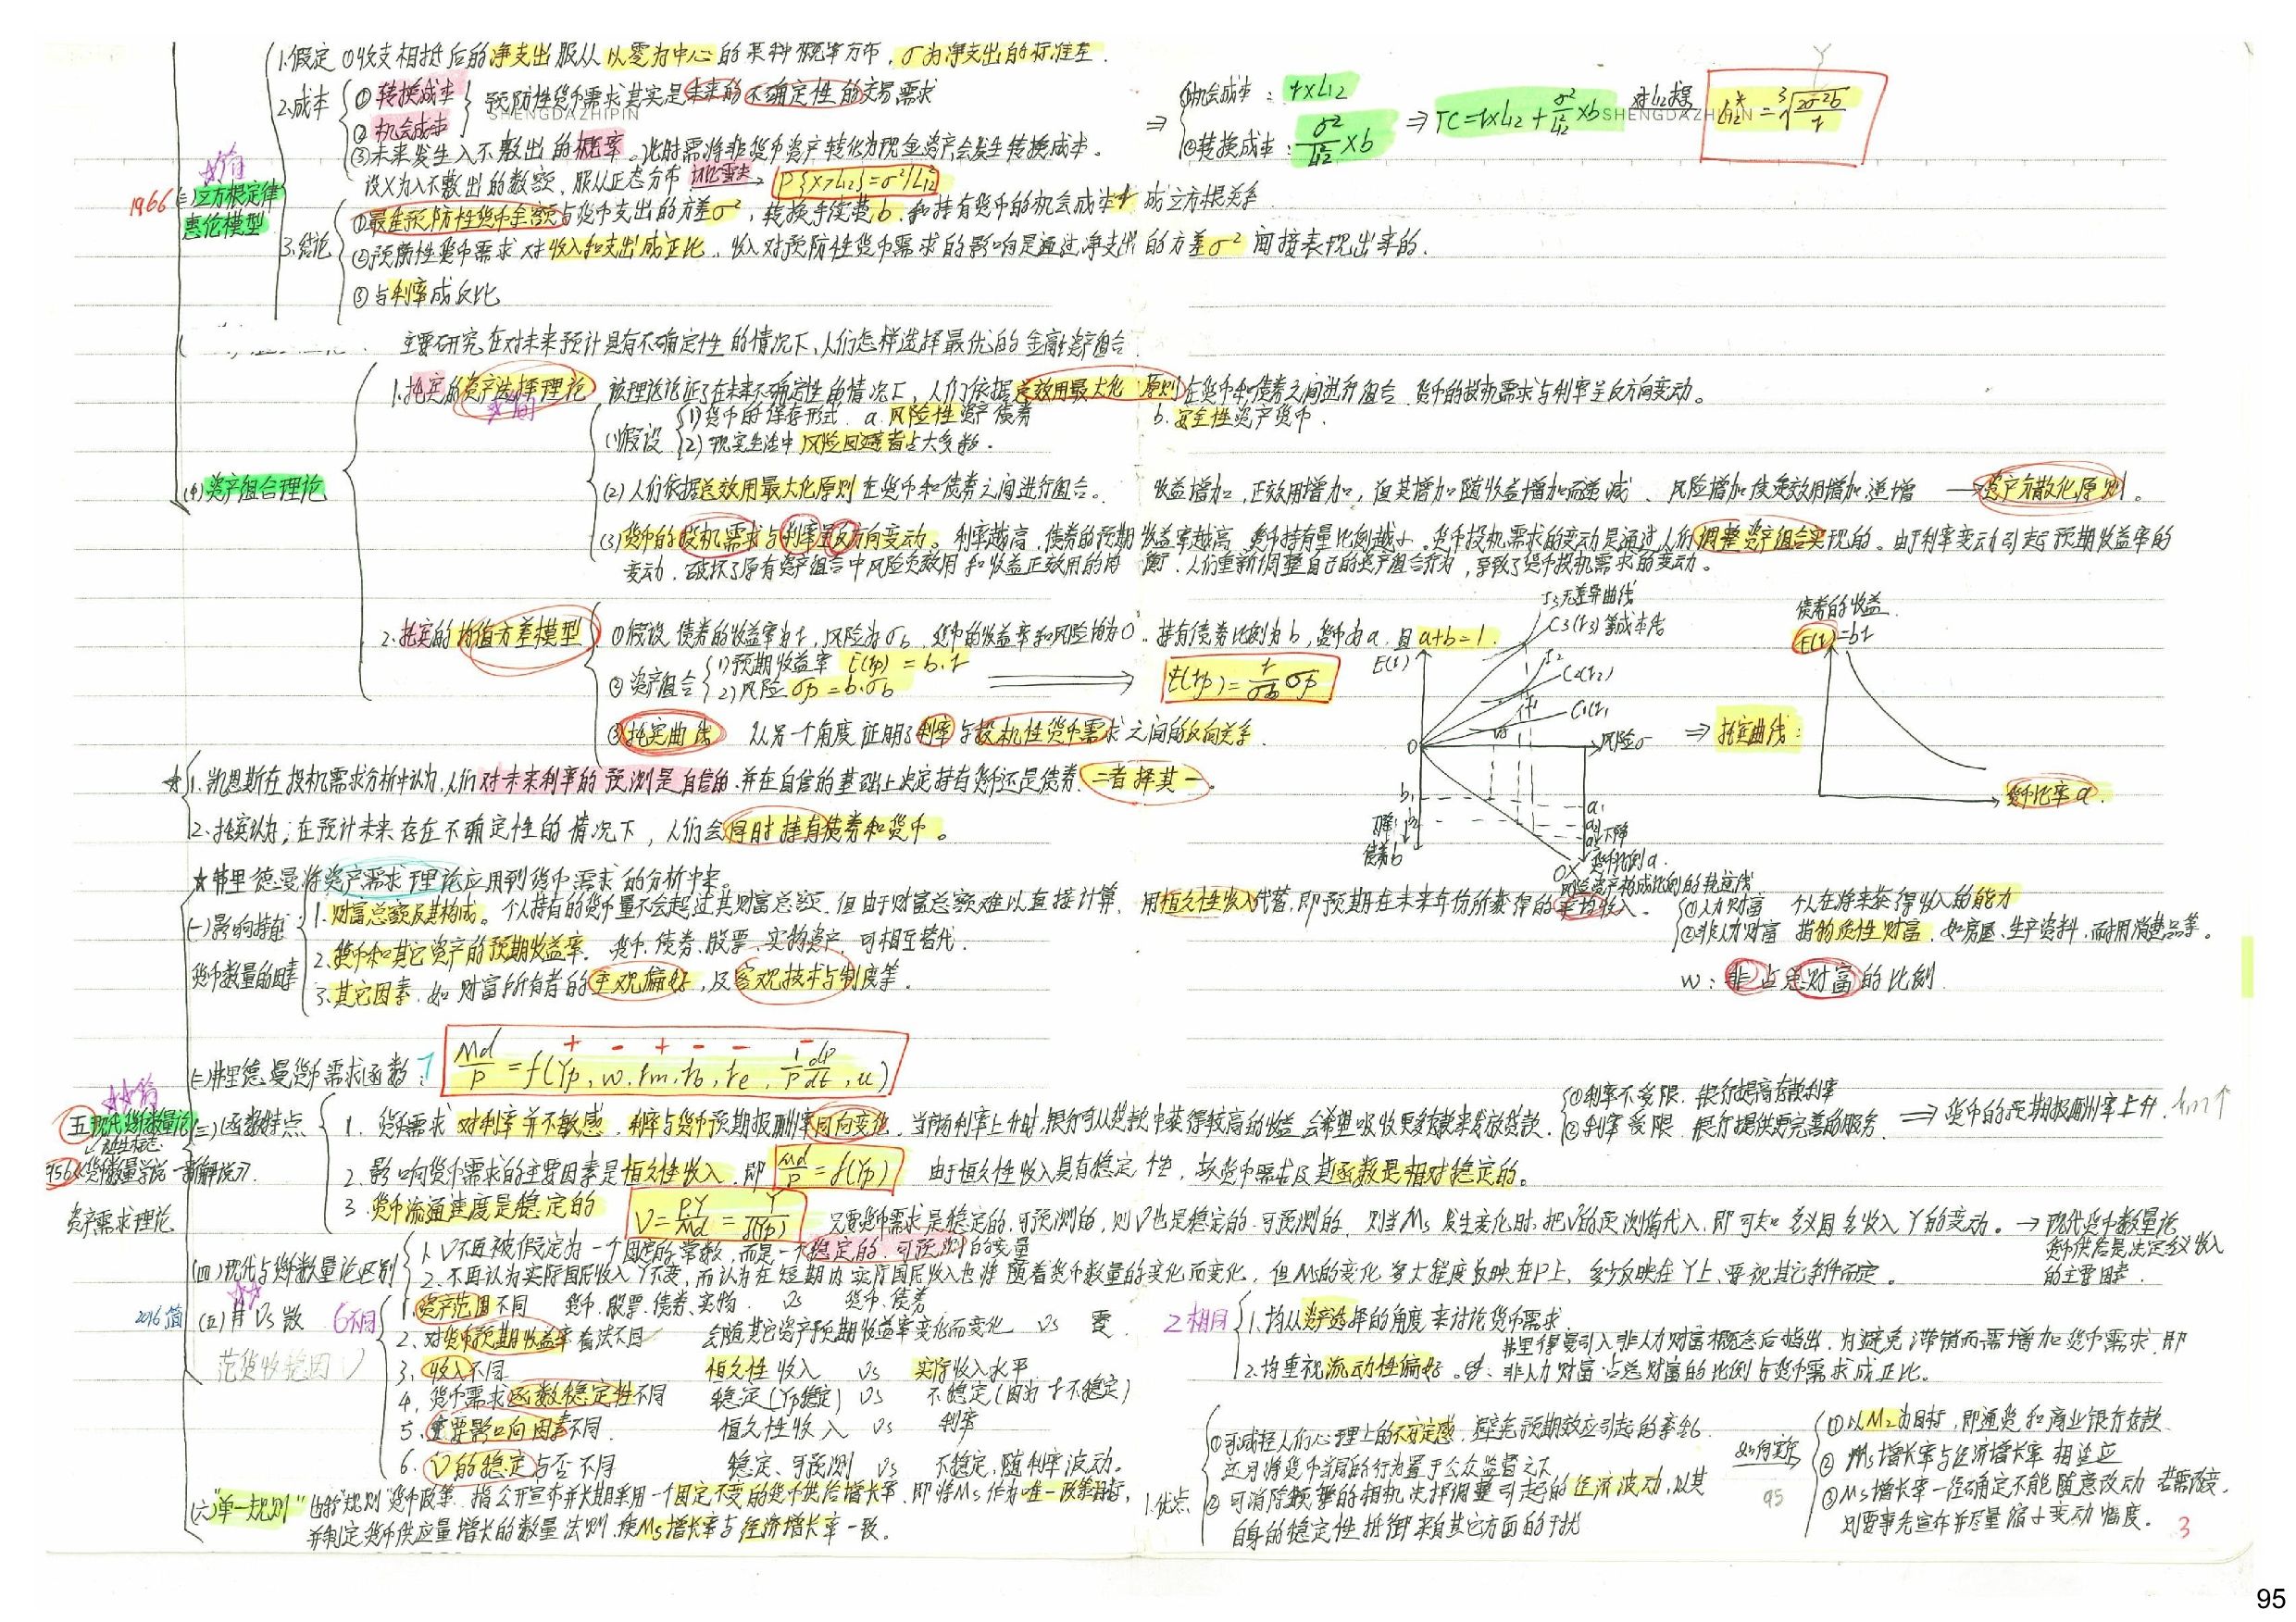 1.假定 ①收支相抵后的净支出服从以零为中心的某种概率分布，σ为净支出的标准差.
2.成本 ①转换成本 ②机会成本 预防性货币需求其实是未来的不确定性的交易需求
SHENGDAZHIPIN
③未来发生入不敷出的概率。此时需将非货币资产转化为现金资产会发生转换成本.
设X为入不敷出的数额，服从正态分布 → P{X>L12}=σ²/L12²
⇒ ①机会成本：r×L12
②转换成本：σ²/L12² ×b
⇒TC=r×L12+σ²/L12²×b 对L12求导 L12*=³√(2σ²b/r)
SHENGDAZHIPIN
1966 (三)立方根定律 惠伦模型
3.结论 ①最佳预防性货币余额与货币支出的方差σ²，转换手续费b.和持有货币的机会成本r 成立方根关系.
②预防性货币需求对收入和支出成正比，收入对预防性货币需求的影响是通过净支出的方差σ² 间接表现出来的.
③与利率成反比
主要研究在对未来预计具有不确定性的情况下，人们怎样选择最优的金融资产组合.
(四)资产组合理论
1.托宾的资产选择理论 该理论论证了在未来不确定性的情况下，人们依据总效用最大化原则在货币和债券之间进行组合. 货币的投机需求与利率呈反方向变动。
(1)假设 1)货币的保存形式. a.风险性资产债券 b.安全性资产货币.
2)现实生活中风险回避者占大多数.
(2)人们依据总效用最大化原则在货币和债券之间进行组合。 收益增加，正效用增加，但其增加随收益增加而递减、风险增加使负效用增加递增 →资产分散化原则。
(3)货币的投机需求与利率呈反方向变动。利率越高，债券的预期收益率越高，货币持有量比例越小。货币投机需求的变动是通过人们调整资产组合实现的。由于利率变动引起预期收益率的
变动，破坏了原有资产组合中风险负效用和收益正效用的均衡，人们重新调整自己的资产组合行为，导致了货币投机需求的变动。
2.托宾的均值方差模型 ①假设 债券的收益率为r，风险为σb，货币的收益率和风险均为0. 持有债券比例为b，货币为a，且a+b=1.
②资产组合 1)预期收益率 E(rp)=b.r
2)风险 σp=b.σb
E(rp)=r/σb σp
③托宾曲线 从另一个角度证明了利率与投机性货币需求之间的反向关系.
I3无差异曲线
C3(r3)等成本法
I2
C2(r2)
C1(r1
E(r)
0
风险σ
b1
a1
下降
债券b
货币比例a.
风险资产构成比例的轨迹线
⇒托宾曲线：
债券的收益
E(r)=br
货币比率a.
★1.凯恩斯在投机需求分析中认为，人们对未来利率的预测是自信的.并在自信的基础上决定持有货币还是债券，二者择其一。
2.托宾认为，在预计未来存在不确定性的情况下，人们会同时持有债券和货币。
★弗里德曼将资产需求理论应用到货币需求的分析中来。
(一)影响持有货币数量的因素
1.财富总额及其构成。个人持有的货币量不会超过其财富总额.但由于财富总额难以直接计算. 用恒久性收入代替，即预期在未来年份所获得的平均收入.
①人力财富 个人在将来获得收入的能力
②非人力财富 指物质性财富，如房屋、生产资料，耐用消费品等。
2.货币和其它资产的预期收益率. 货币、债券、股票、实物资产，可相互替代.
3.其它因素，如财富所有者的主观偏好，及客观技术与制度等.
w：非占总财富的比例.
(二)弗里德曼货币需求函数：
+ - + - - -
Md/P=f(Yp, w, rm, rb, re, 1/P dP/dt, u)
五.现代货币数量论
1956《货币数量学说—新解说》.
资产需求理论
(三)函数特点
1. 货币需求对利率并不敏感，利率与货币预期报酬率同向变化，当市场利率上升时，银行可以从贷款中获得较高的收益，会希望吸收更多存款来发放贷款.
①利率不受限，银行提高存款利率
②利率受限，银行提供更完善的服务.
⇒货币的预期报酬率上升，rm↑
2.影响货币需求的主要因素是恒久性收入，即 Md/P=f(Yp) 由于恒久性收入具有稳定性，故货币需求及其函数是相对稳定的。
3.货币流通速度是稳定的 V=PY/Md=Y/f(Yp) 只要货币需求是稳定的，可预测的，则V也是稳定的.可预测的，则当Ms发生变化时，把V的预测值代入，即可知名义国名收入Y的变动。→现代货币数量论
货币供给是决定名义收入
的主要因素.
(四)现代与货币数量论区别
1.V不再被假定为一个固定的常数，而是一个稳定的.可预测的变量
2.不再认为实际国民收入Y不变，而认为在短期内实际国民收入也将随着货币数量的变化而变化，但Ms的变化多大程度反映在P上，多少反映在Y上，要视其它条件而定。
2016简 (五)弗 VS 凯 6不同
范货收稳因V
1.资产范围不同 货币.股票.债券.实物. VS 货币.债券
2.对货币预期收益率看法不同 会随其它资产预期收益率变化而变化 VS 零.
3.收入不同 恒久性收入 VS 实际收入水平
4.货币需求函数稳定性不同 稳定(Yp稳定) VS 不稳定(因为r不稳定)
5.主要影响因素不同. 恒久性收入 VS 利率
6.V的稳定与否不同 稳定、可预测 VS 不稳定，随利率波动。
2相同 1.均从资产选择的角度来讨论货币需求
2.均重视流动性偏好。弗里得曼引入非人力财富概念后指出，为避免滞销而需增加货币需求，即
非人力财富占总财富的比例与货币需求成正比。
(六)"单一规则" 也称"规则"货币政策，指公开宣布并长期采用一个固定不变的货币供给增长率.即将Ms作为唯一政策目标，
并制定货币供应量增长的数量法则.使Ms增长率与经济增长率一致。
1.优点 ①可减轻人们心理上的不安定感，避免预期效应引起的紊乱.
还可将货币当局的行为置于公众监督之下
②可消除频繁的相机抉择调整引起的经济波动，以其
自身的稳定性抵御来自其它方面的干扰
如何实施
①以M2为目标，即通货和商业银行存款.
②Ms增长率与经济增长率相适应
③Ms增长率一经确定不能随意改动 若需改变，
则要事先宣布并尽量缩小变动幅度.
95
3
95